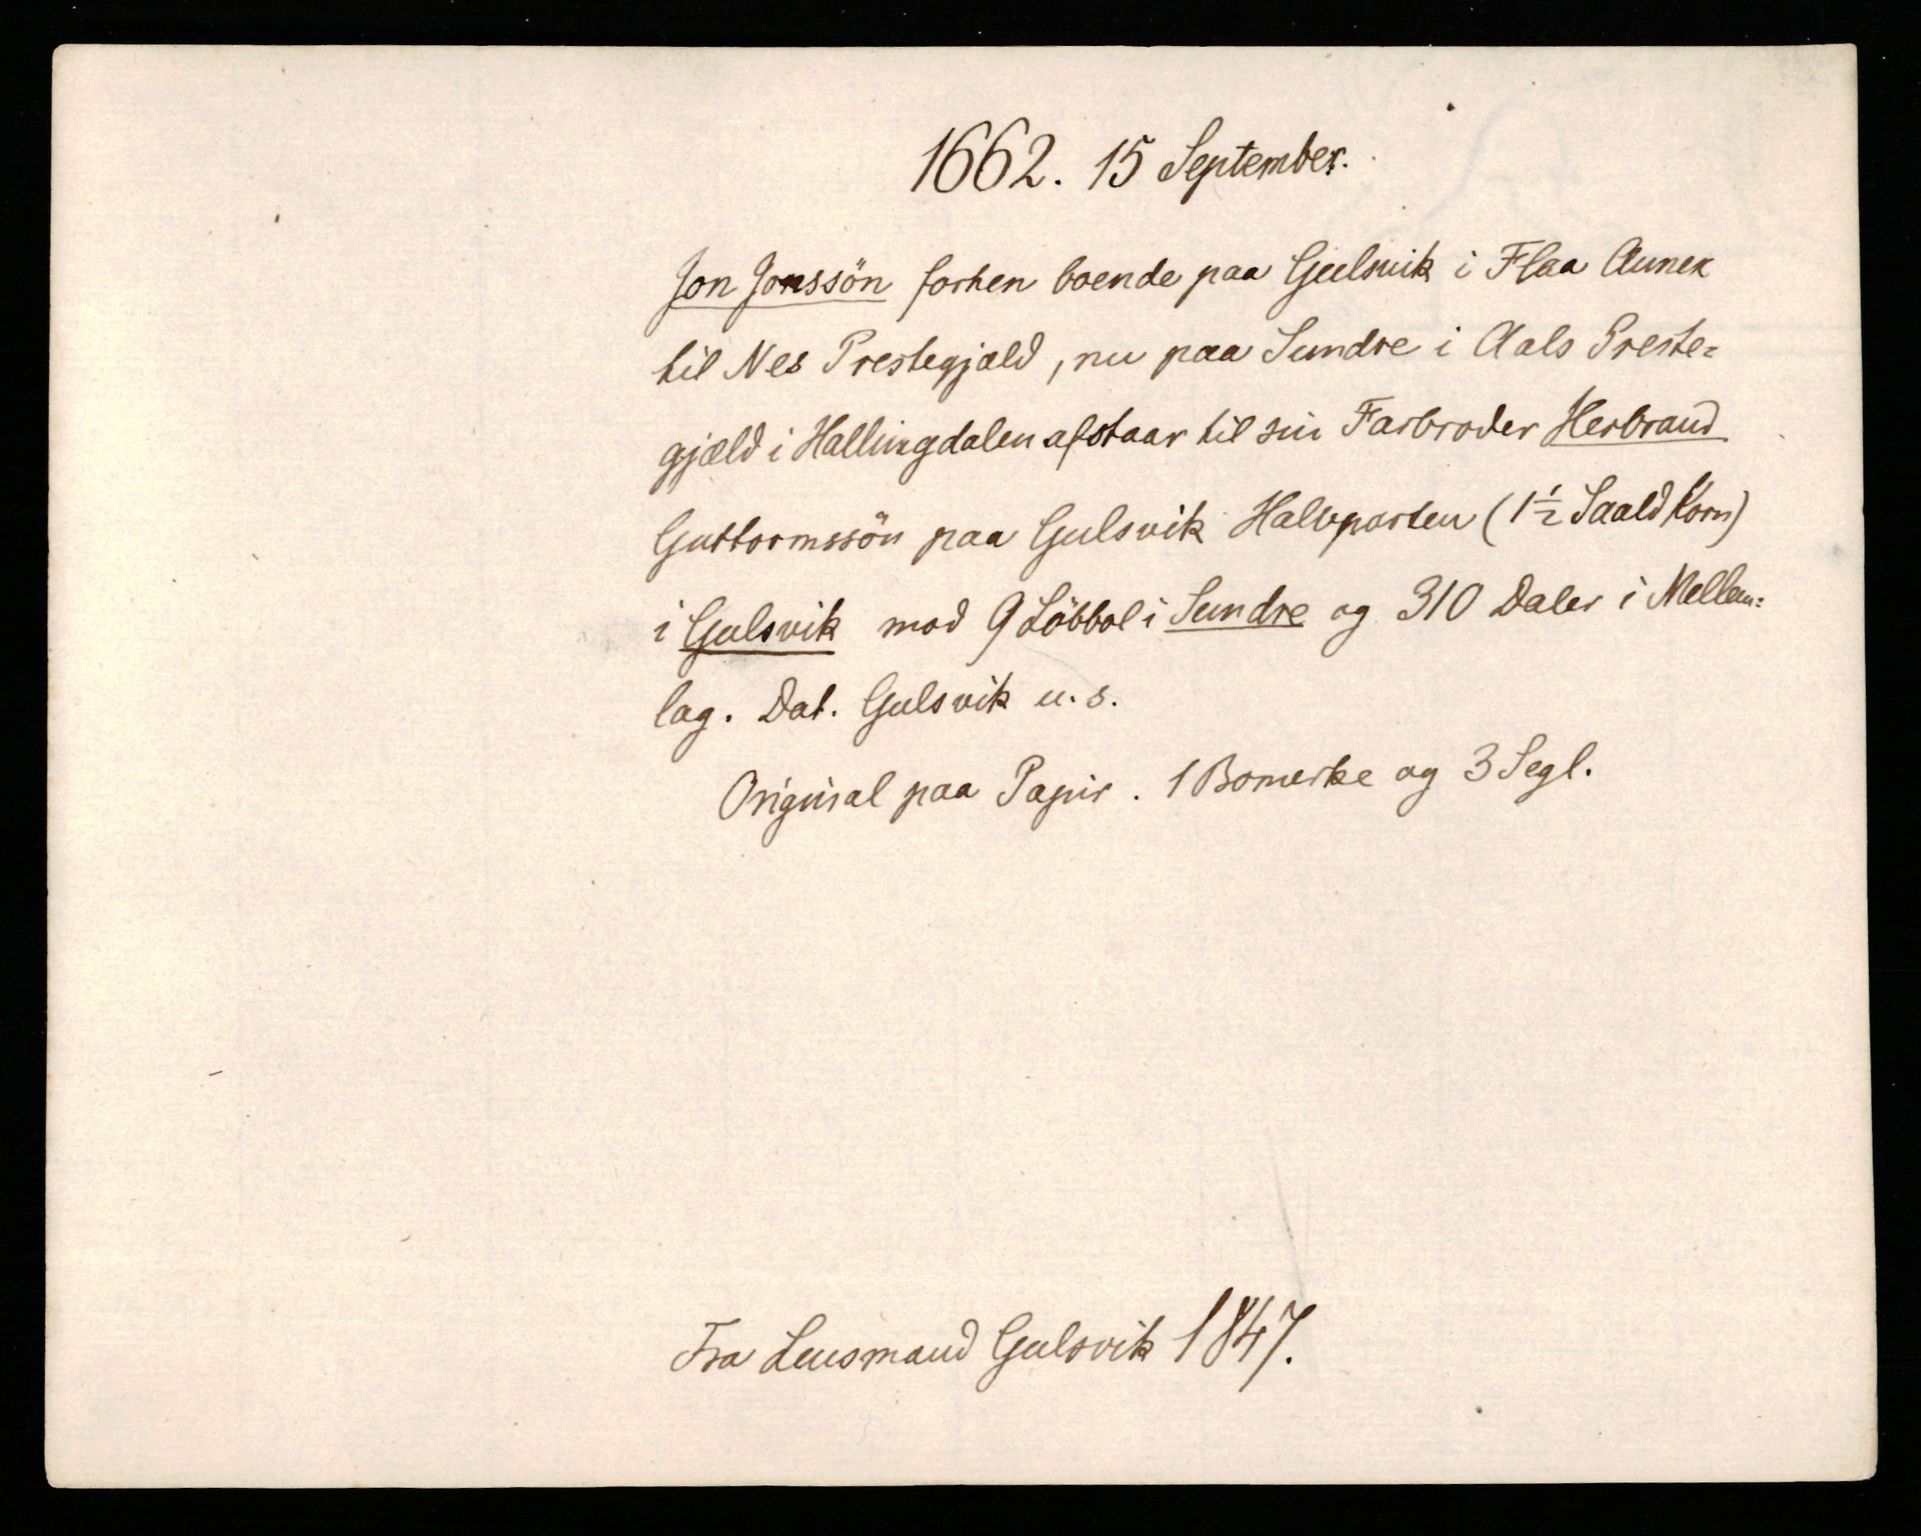 1662. 15 September.
Jon Jonssön forhen boende paa Gulsvik i Flaa Annex
til Nes Prestegjæld, nu paa Sundre i Aals Preste-
gjæld i Hallingdalen afstaar til sin Farbroder Herbrand
Guttormssön paa Gulsvik Halvparten (1½ Saald Korn)
i Gulsvik mod 9 Löbbol i Sundre og 310 Daler i Mellem-
lag. Dat. Gulsvik u. s.
Original paa Papir. 1 Bomerke og 3 Segl.
Fra Lensmand Gulsvik 1847.